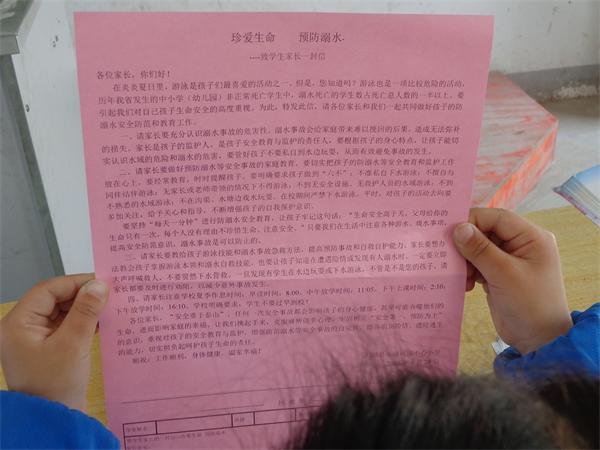 珍爱生命 预防溺水.
----致学生家长一封信
各位家长，你们好！
在炎炎夏日里，游泳是孩子们最喜爱的活动之一。但是，您知道吗？游泳也是一项比较危险的活动，
历年我省发生的中小学（幼儿园）非正常死亡学生中，溺水死亡的学生数占死亡总人数的一半以上，要
引起我们对自己子女生命安全的高度重视。为此，特发此信，请各位家长和我们一起共同做好孩子的防
溺水安全防范和教育工作。
一、请家长要充分认识溺水事故的危害性。溺水事故会给家庭带来难以挽回的后果，造成无法弥补
的损失。家长是孩子的监护人，是孩子安全教育与监护的责任人，要根据孩子的身心特点，让孩子能切
实认识水域的危险和溺水的危害，要管好孩子不要私自到水边玩耍，从而有效避免事故的发生。
二、请家长要做好预防溺水等安全事故的家庭教育。要切实把孩子的防溺水等安全教育和监护工作
放在心上，要经常教育，时时提醒孩子。要明确要求孩子做到“六不”，不准私自下水游泳；不擅自与
同伴结伴游泳；无家长或老师带领的情况下不得游泳，不到无安全设施、无救护人员的水域游泳，不到
不熟悉的水域游泳；不在沟渠、水塘边戏水玩耍。在校期间严禁下水游泳。平时，对孩子的活动去向要
多加关注，给予关心和指导，不断增强孩子们的自我保护意识。
要坚持“每天一分钟”进行防溺水安全教育，让孩子牢记这句话：“生命安全高于天，父母给你的
生命只有一次，每个人没有理由不珍惜生命、注意安全。”只要我们在生活中注意各种游水、戏水事项，
提高安全防范意识，溺水事故是可以防止的。
三、请家长要教给孩子游泳技能和溺水事故急救方法，提高预防事故和自救自护能力。家长要想办
法教会孩子掌握游泳本领和溺水自救技能。也要让孩子知道在遭遇险情或发现有人溺水时，一定要立即
大声呼喊救人，不要贸然下水营救。一旦发现有学生在水边玩耍或下水游泳，不管是不是您的孩子，请
家长都要及时进行劝阻，以减少意外事故发生。
四、请家长注意学校夏季作息时间：早读时间：8:00，中午放学时间：11:05，下午上课时间：2:10，
下午放学时间：16:10，学校明确要求，学生不要过早到校！
各位家长，“安全重于泰山”，任何一次安全事故都会影响孩子们的身心健康，
生命，进而影响家庭的幸福。让我们携起手来，
的意识，重视对孩子的安全教育与监护，增强防范溺水等安全事故的自觉性，
的能力，切实担负起呵护孩子生命的责任。
顺祝：工作顺利，身体健康，阖家幸福！